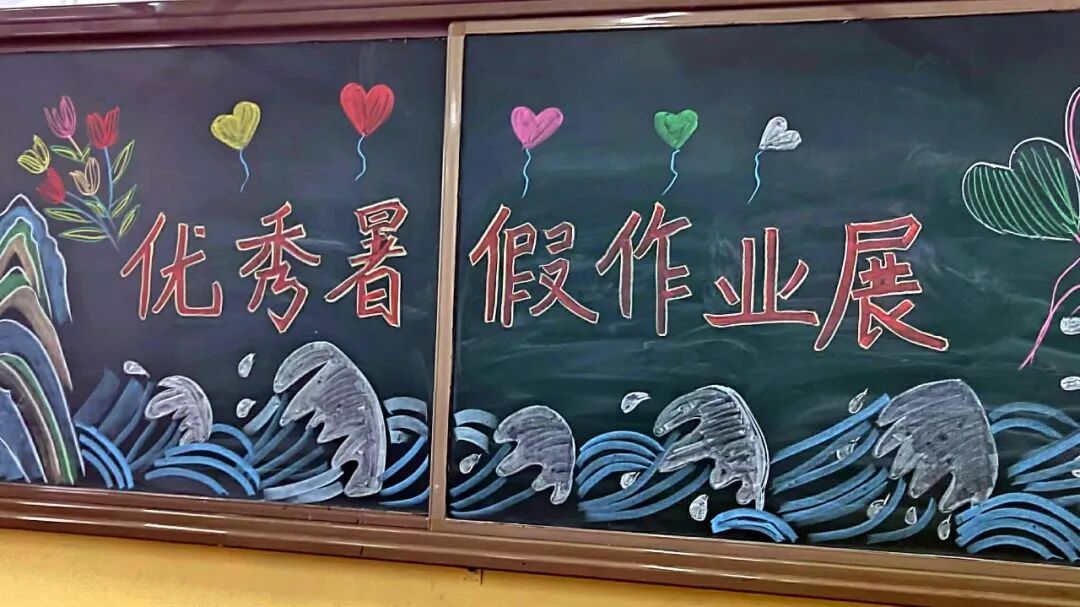 优秀暑假作业展